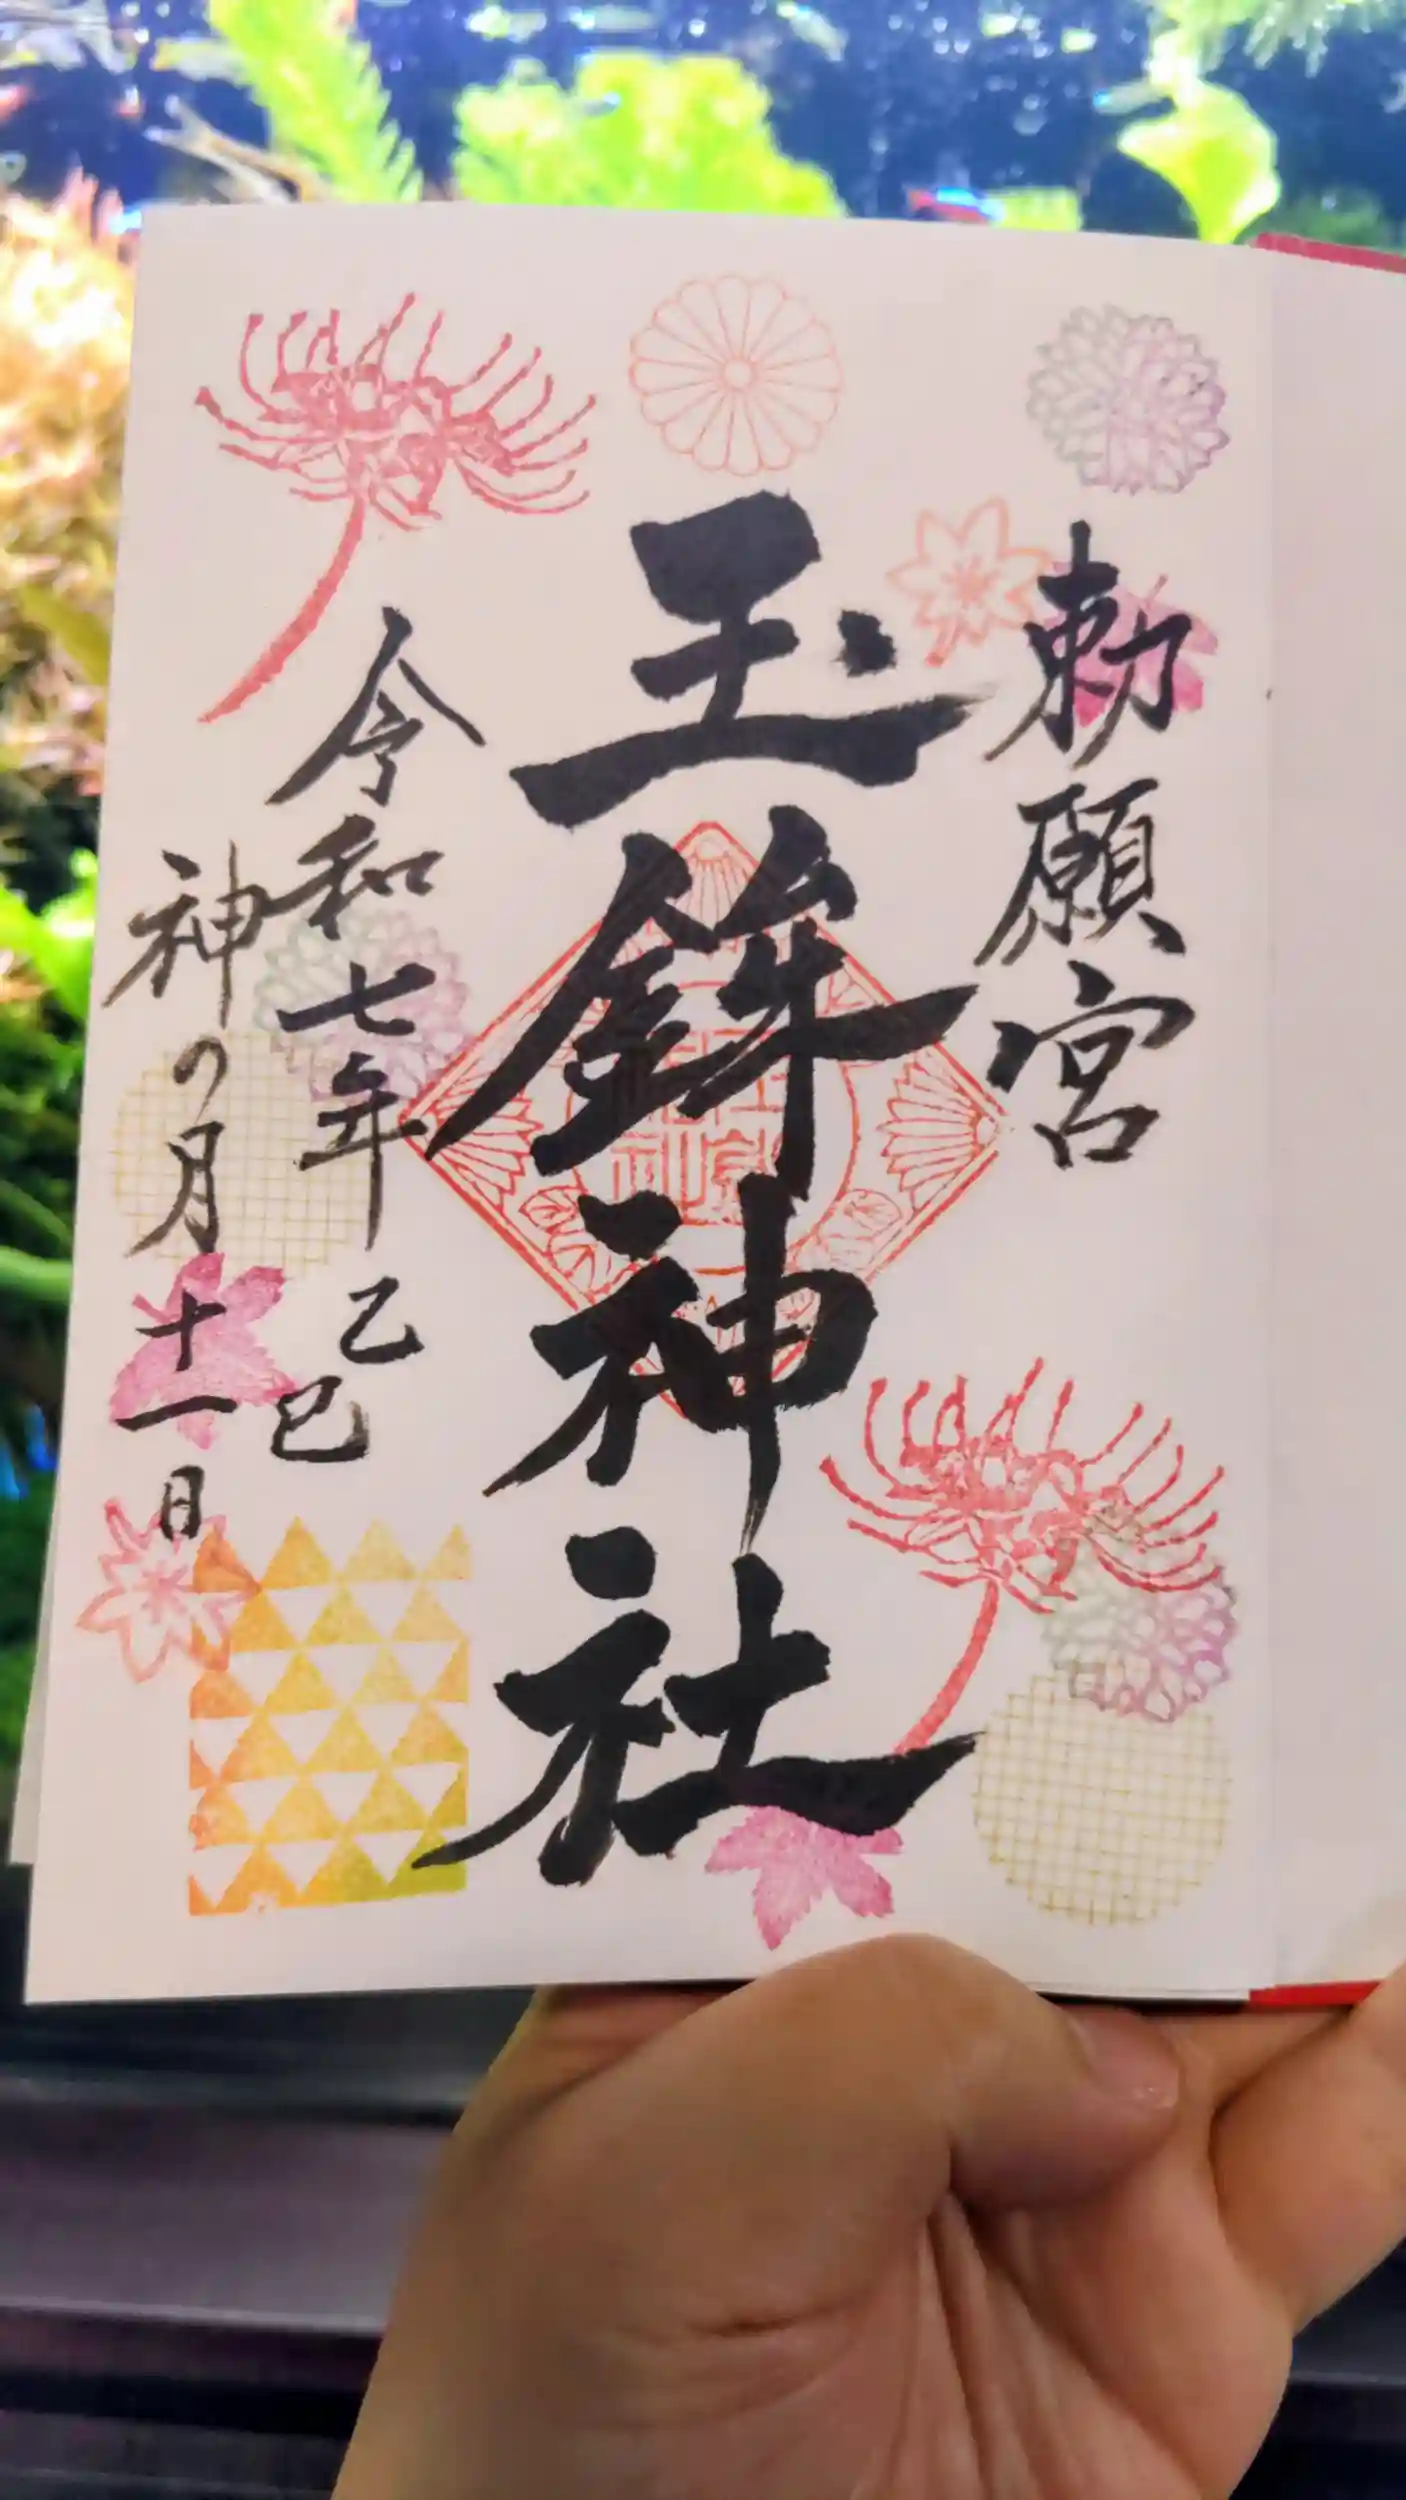 勅願宮
玉鉾神社
令和七年 乙巳
神の月十一日